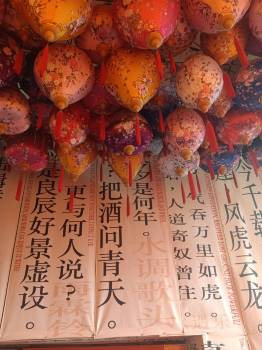 是良辰好景虚设。
更与何人说?
霖铃
?把酒问青天。
是何年。
水调歌头
人道寄奴曾住
气吞万里如虎。
风虎云龙
今千载